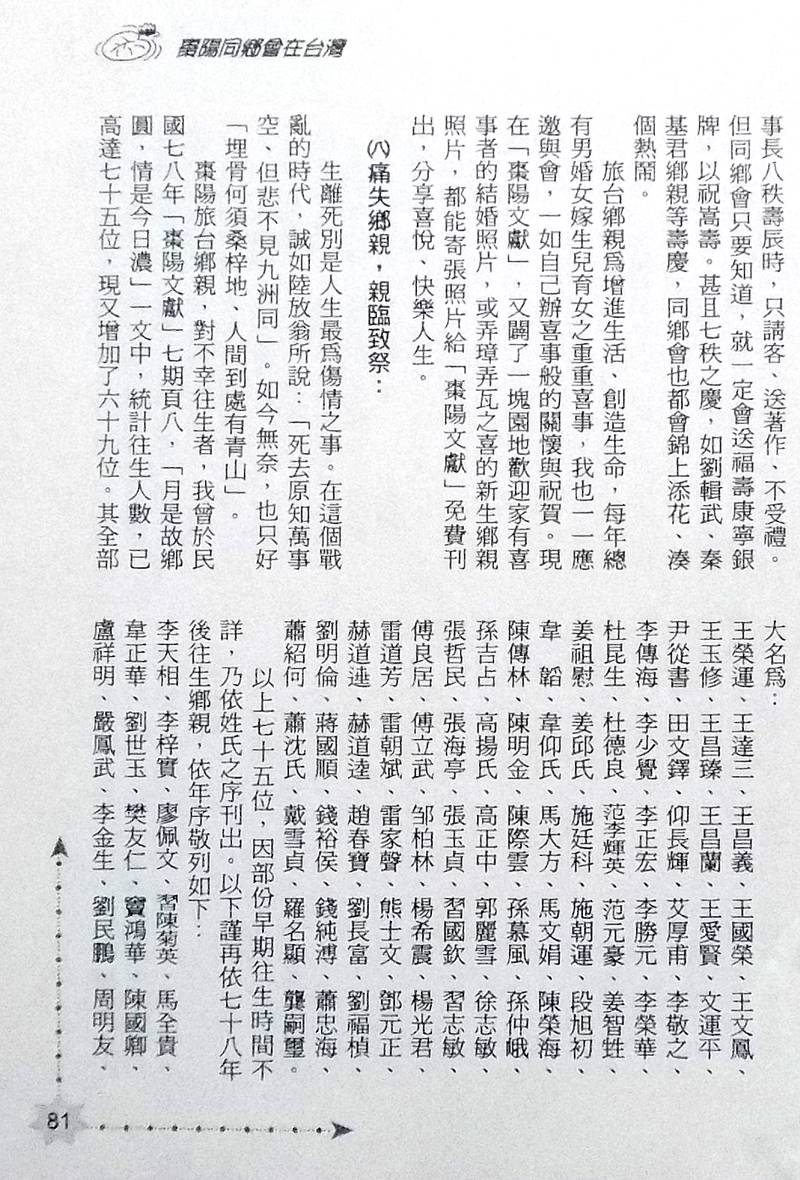 棗陽同鄉會在台灣
事長八秩壽辰時，只請客、送著作、不受禮。
但同鄉會只要知道，就一定會送福壽康寧銀
牌，以祝嵩壽。甚且七秩之慶，如劉輯武、秦
基君鄉親等壽慶，同鄉會也都會錦上添花、湊
個熱鬧。
旅台鄉親爲增進生活、創造生命，每年總
有男婚女嫁生兒育女之重重喜事，我也一一應
邀與會，一如自己辦喜事般的關懷與祝賀。現
在「棗陽文獻」，又闢了一塊園地歡迎家有喜
事者的結婚照片，或弄璋弄瓦之喜的新生鄉親
照片，都能寄張照片給「棗陽文獻」免費刊
出，分享喜悅、快樂人生。
㈧痛失鄉親，親臨致祭：
生離死別是人生最爲傷情之事。在這個戰
亂的時代，誠如陸放翁所說：「死去原知萬事
空、但悲不見九洲同」。如今無奈，也只好
「埋骨何須桑梓地、人間到處有青山」。
棗陽旅台鄉親，對不幸往生者，我曾於民
國七八年「棗陽文獻」七期頁八，「月是故鄉
圓，情是今日濃」一文中，統計往生人數，已
高達七十五位，現又增加了六十九位。其全部
大名爲：
王榮運、王達三、王昌義、王國榮、王文鳳、
王玉修、王昌瑧、王昌蘭、王愛賢、文運平、
尹從書、田文鐸、仰長輝、艾厚甫、李敬之、
李傳海、李少覺、李正宏、李勝元、李榮華、
杜昆生、杜德良、范李輝英、范元豪、姜智甡、
姜祖慰、姜邱氏、施廷科、施朝運、段旭初、
韋　韜、韋仰氏、馬大方、馬文娟、陳榮海、
陳傳林、陳明金、陳際雲、孫慕風、孫仲峨、
孫吉占、高揚氏、高正中、郭麗雪、徐志敏、
張哲民、張海亭、張玉貞、習國欽、習志敏、
傅良居、傅立武、邹柏林、楊希震、楊光君、
雷道芳、雷朝斌、雷家聲、熊士文、鄧元正、
赫道連、赫道逵、趙春寶、劉長富、劉福楨、
劉明倫、蔣國順、錢裕侯、錢純溥、蕭忠海、
蕭紹何、蕭沈氏、戴雪貞、羅名顯、龔嗣璽。
以上七十五位，因部份早期往生時間不
詳，乃依姓氏之序刊出。以下謹再依七十八年
後往生鄉親，依年序敬列如下：
李天相、李梓實、廖佩文、習陳菊英、馬全貴、
韋正華、劉世玉、樊友仁、竇鴻華、陳國卿、
盧祥明、嚴鳳武、李金生、劉民鵬、周明友、
81